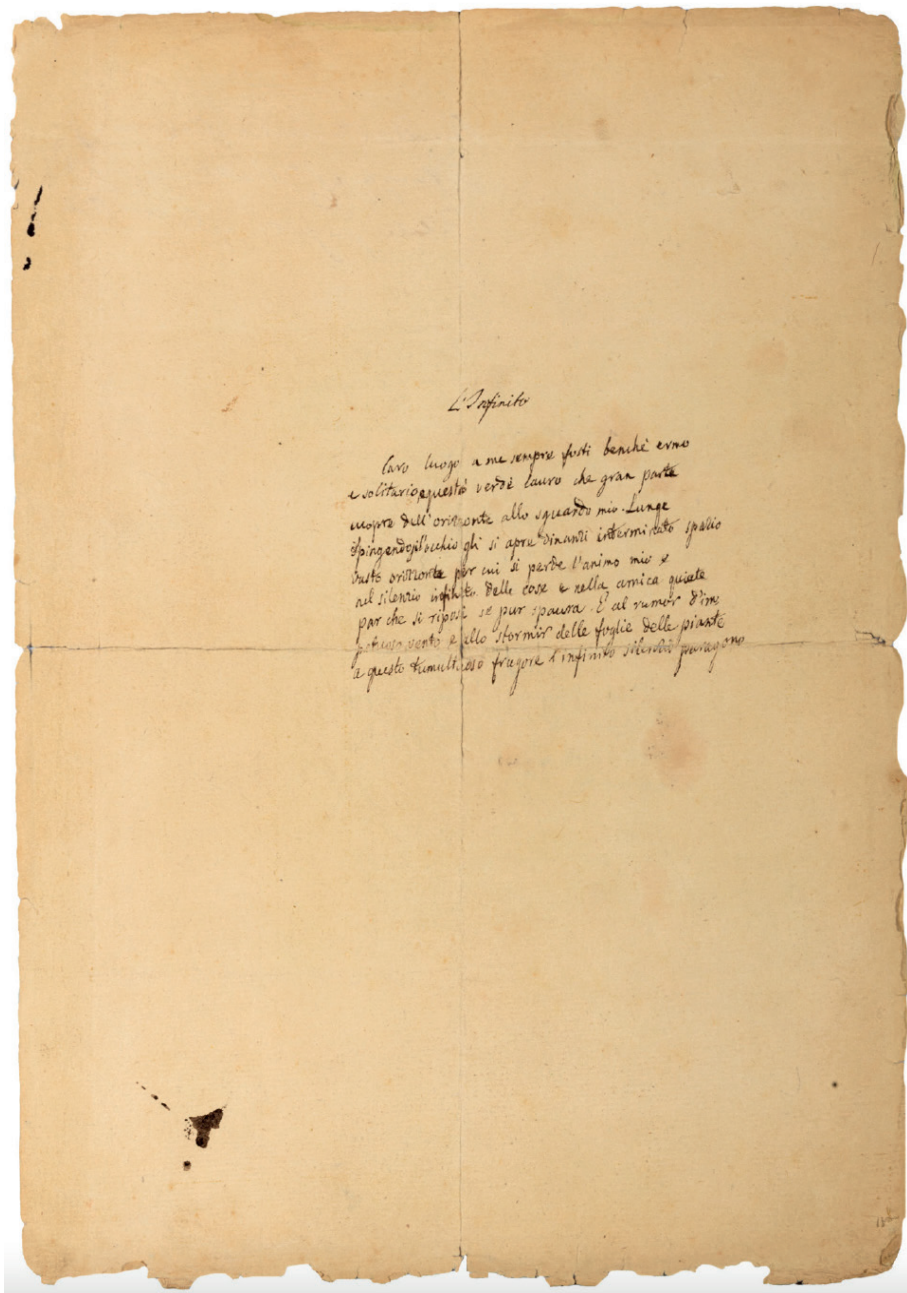 L'Infinito
Caro luogo a me sempre fosti benché ermo
e solitario, e questo verde lauro che gran parte
cuopre dell'orizzonte allo sguardo mio. Lunge
spingendosi l'occhio gli si apre dinanzi interminato spazio
vasto orizzonte per cui si perde l'animo mio e
nel silenzio infinito delle cose e nella amica quiete
par che si riposi se pur spaura. E al rumor d'impe
tuoso vento e allo stormir delle foglie delle piante
a questo tumultuoso fragore l'infinito silenzio paragono